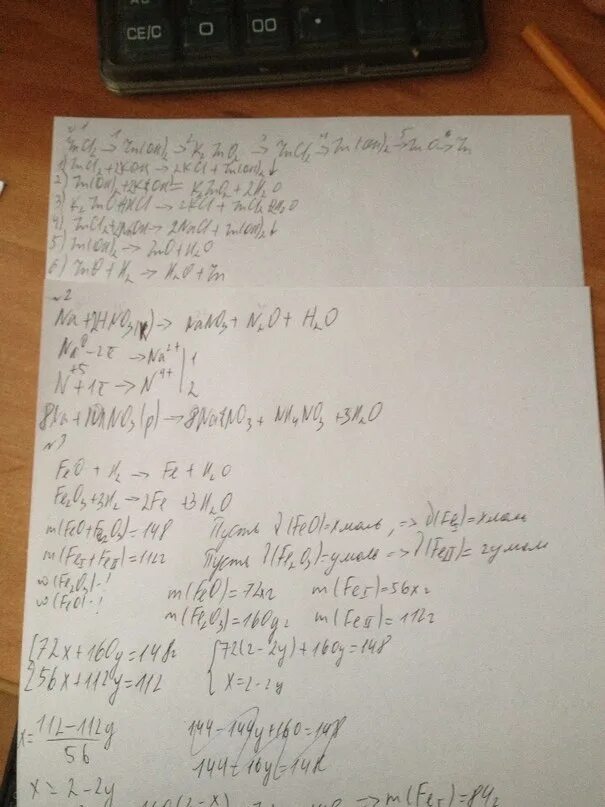 CE/C 0 00 .
№1
ZnCl₂ →¹ Zn(OH)₂ →² K₂ZnO₂ →³ ZnCl₂ →⁴ Zn(OH)₂ →⁵ ZnO →⁶ Zn
1) ZnCl₂ + 2KOH → 2KCl + Zn(OH)₂↓
2) Zn(OH)₂ + 2KOH = K₂ZnO₂ + 2H₂O
3) K₂ZnO + HCl → 2KCl + ZnCl₂ 2H₂O
4) ZnCl₂ + 2NaOH → 2NaCl + Zn(OH)₂↓
5) Zn(OH)₂ → ZnO + H₂O
6) ZnO + H₂ → H₂O + Zn
№2
Na + 2HNO₃ → NaNO₃ + N₂O + H₂O
Na⁰ - 2ē → Na²⁺ | 1
N⁺⁵ + 1ē → N⁴⁺ | 2
8Na + 10HNO₃(р) → 8NaNO₃ + NH₄NO₃ + 3H₂O
№3
FeO + H₂ → Fe + H₂O
Fe₂O₃ + 3H₂ → 2Fe + 3H₂O
m(FeO + Fe₂O₃) = 148 Пусть ν(FeO) = x моль, => ν(Fe_I) = x моль
m(Fe_I + Fe_II) = 112 Пусть ν(Fe₂O₃) = y моль => ν(Fe_II) = 2y моль
w(Fe₂O₃) - ?
w(FeO) - ?
m(FeO) = 72x m(Fe_I) = 56x
m(Fe₂O₃) = 160y m(Fe_II) = 112
{72x + 160y = 148 {72(2 - 2y) + 160y = 148
{56x + 112y = 112 {x = 2 - 2y
x = (112 - 112y)/56 144 - 144y + 160 = 148
144 - 16y = 148
x = 2 - 2y
=> m(Fe_I) = 84